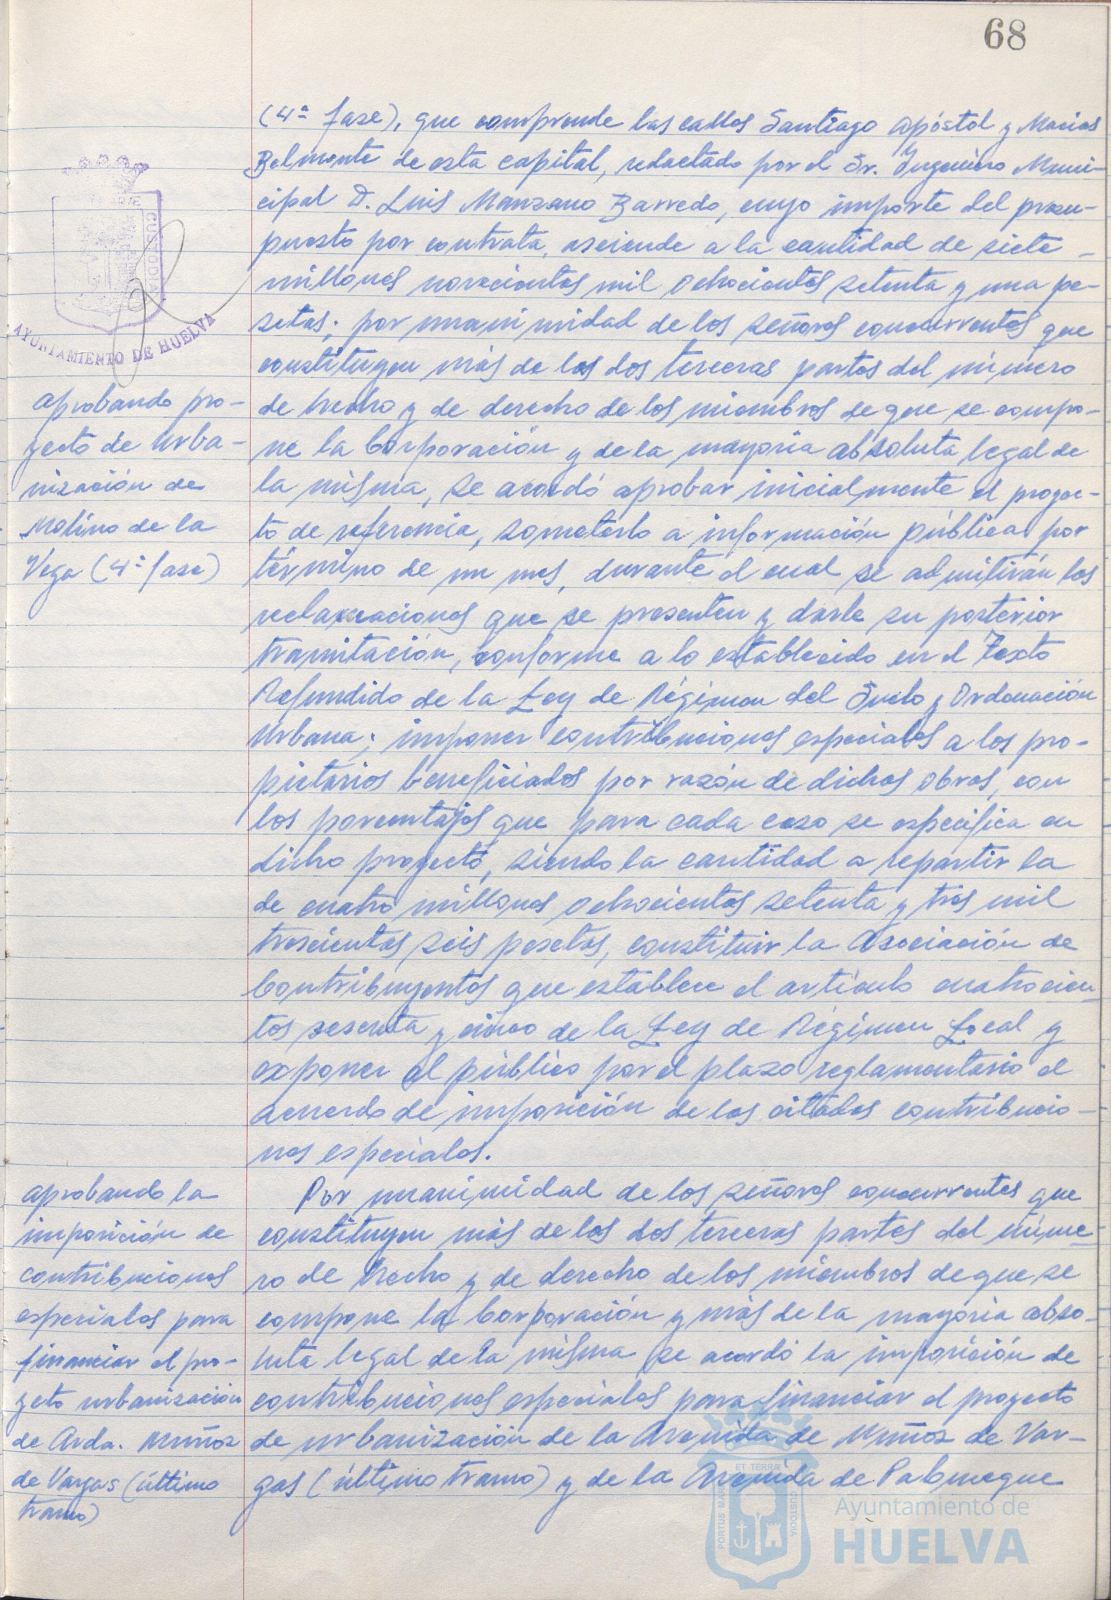 68
(4ª fase), que comprende las calles Santiago Apóstol y Macias
Belmonte de esta capital, redactado por el Sr. Ingeniero Muni-
cipal D. Luis Manzano Barredo, cuyo importe del presu-
puesto por contrata, asciende a la cantidad de siete
millones novecientas mil ochocientas setenta y una pe-
setas; por unanimidad de los señores concurrentes que
constituyen más de las dos terceras partes del número
de hecho y de derecho de los miembros de que se compo-
ne la Corporación y de la mayoria absoluta legal de
la misma, se acordó aprobar inicialmente el proyec-
to de referencia, someterlo a información pública por
término de un mes, durante el cual se admitirán las
reclamaciones que se presenten y darle su posterior
tramitación, conforme a lo establecido en el Texto
Refundido de la Ley de Régimen del Suelo y Ordenación
Urbana; imponer contribuciones especiales a los pro-
pietarios beneficiados por razón de dichas obras, con
los porcentajes que para cada caso se especifica en
dicho proyecto, siendo la cantidad a repartir la
de cuatro millones ochocientas setenta y tres mil
trescientas seis pesetas, constituir la Asociación de
Contribuyentes que establece el artículo cuatrocien-
tos sesenta y cinco de la Ley de Régimen Local y
exponer al público por el plazo reglamentario el
acuerdo de imposición de las citadas contribucio-
nes especiales.
Por unanimidad de los señores concurrentes que
constituyen más de las dos terceras partes del núme-
ro de hecho y de derecho de los miembros de que se
compone la Corporación y más de la mayoria abso-
luta legal de la misma se acordó la imposición de
contribuciones especiales para financiar el proyecto
de urbanización de la Avenida de Muñoz de Var-
gas (último tramo) y de la Avenida de Palomeque
AYUNTAMIENTO DE HUELVA
CUSTODIA
aprobando pro-
yecto de Urba-
nización de
Molino de la
Vega (4ª fase)
aprobando la
imposición de
contribuciones
especiales para
financiar el pro-
yecto urbanización
de Avda. Muñoz
de Vargas (último
tramo)
ET TERRAE
PORTUS MA
CUSTODIA
Ayuntamiento de
HUELVA